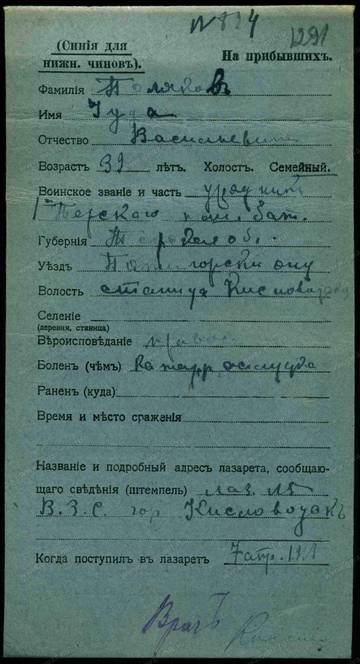 1291
(Синія для
нижн. чиновъ).
На прибывшихъ.
Фамилія Поляковъ
Имя Іуда
Отчество Васильевичъ
Возрастъ 39 лѣтъ. Холост. Семейный.
Воинское званіе и часть урядник
1 Терскаго бат.
Губернія Терская об.
Уѣздъ
Волость станица Кисловодская
Селеніе
(деревня, станица)
Вѣроисповѣданіе правос
Боленъ (чѣмъ) Катарр желудка
Раненъ (куда)
Время и мѣсто сраженія
Названіе и подробный адресъ лазарета, сообщаю-
щаго свѣдѣнія (штемпель) лаз. №
В. З. С. гор Кисловодскъ
Когда поступилъ въ лазаретъ 7 апр.
Врачъ